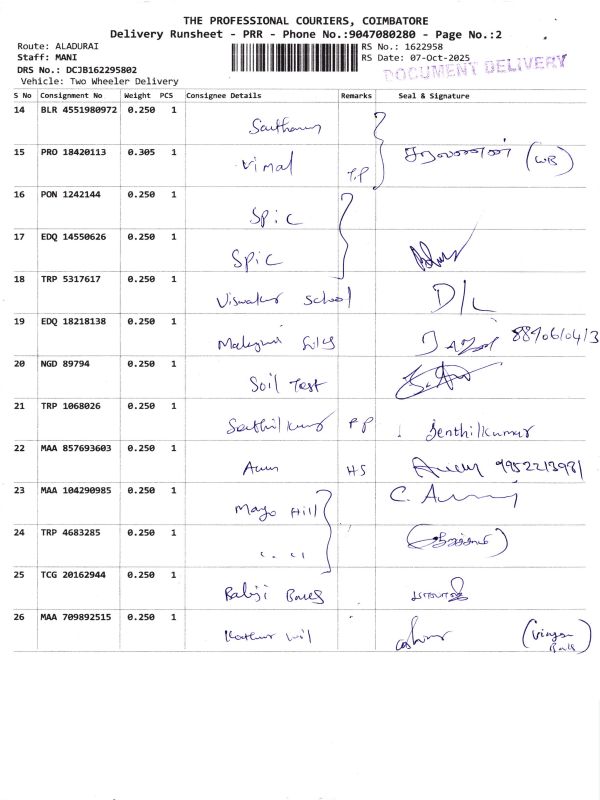 THE PROFESSIONAL COURIERS, COIMBATORE
Delivery Runsheet - PRR - Phone No.:9047080280 - Page No.:2
Route: ALADURAI RS No.: 1622958
Staff: MANI RS Date: 07-Oct-2025
DOCUMENT DELIVERY
DRS No.: DCJB162295802
Vehicle: Two Wheeler Delivery
S No Consignment No Weight PCS Consignee Details Remarks Seal & Signature
14 BLR 4551980972 0.250 1
15 PRO 18420113 0.305 1 Vimal T.P சரவணன் (WB)
16 PON 1242144 0.250 1 SPIC
17 EDQ 14550626 0.250 1 SPIC
18 TRP 5317617 0.250 1 School D/L
19 EDQ 18218138 0.250 1
20 NGD 89794 0.250 1 Soil Test
21 TRP 1068026 0.250 1 Senthilkumar PP Senthilkumar
22 MAA 857693603 0.250 1 Arun HS 9952213931
23 MAA 104290985 0.250 1 Hill C.
24 TRP 4683285 0.250 1
25 TCG 20162944 0.250 1 Balaji
26 MAA 709892515 0.250 1